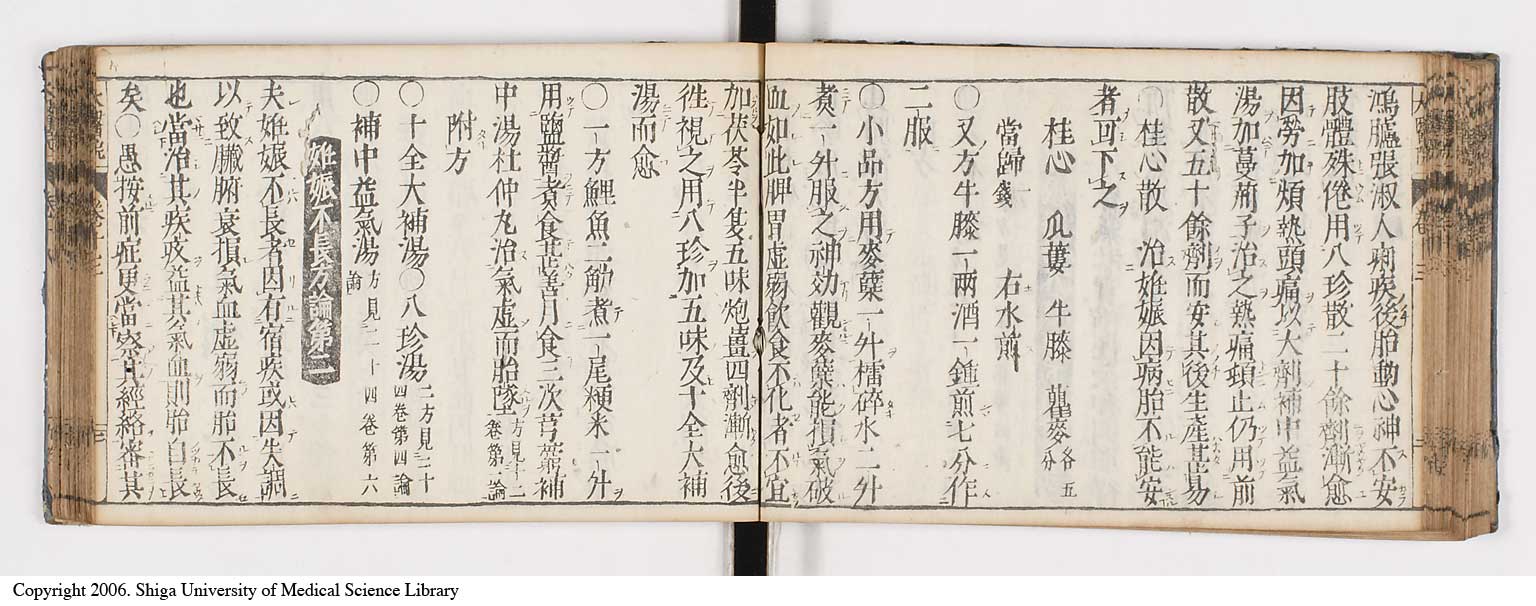 鴻臚張淑人痢疾後胎動心神不安
肢體殊倦用八珍散二十餘劑漸愈
因勞加煩熱頭痛以大劑補中益氣
湯加蔓荊子治之熱痛頓止仍用前
散又五十餘劑而安其後生產甚易
○桂心散 治姙娠因病胎不能安
者可下之
桂心 瓜蔞 牛膝 瞿麥各五分
當歸一錢 右水煎
○又方牛膝一兩酒一鍾煎七分作
二服
○小品方用麥蘗一升擂碎水二升
煮一升服之神効觀麥蘗能損氣破
血如此脾胃虛弱飲食不化者不宜
加茯苓半夏五味炮薑四劑漸愈後
徃視之用八珍加五味及十全大補
湯而愈
○一方鯉魚二觔煮一尾粳米一升
用鹽醬煮食甚善月食三次芎藭補
中湯杜仲丸治氣虛而胎墜方見十二卷第二論
附方
○十全大補湯○八珍湯二方見二十四卷第四論
○補中益氣湯方見二十四卷第六論
姙娠不長方論第二
夫姙娠不長者因有宿疾或因失調
以致臟腑衰損氣血虛弱而胎不長
也當治其疾疚益其氣血則胎自長
矣○愚按前症更當察其經絡審其
Copyright 2006. Shiga University of Medical Science Library